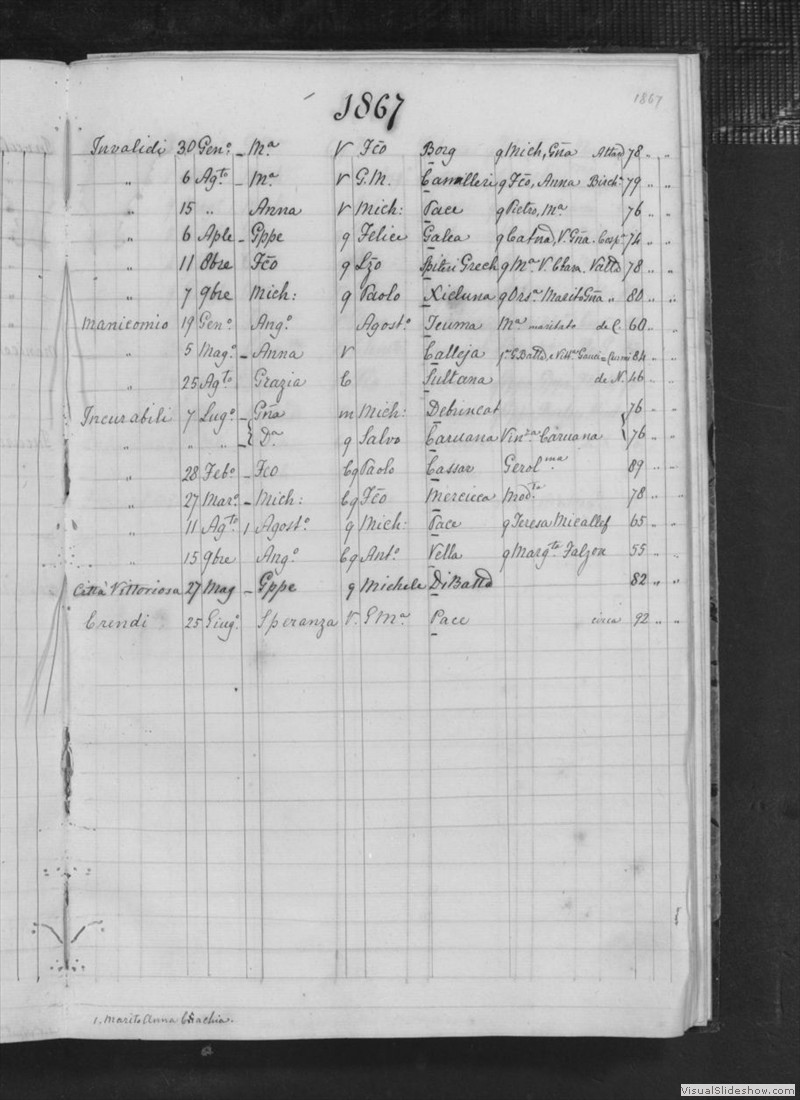 1867
1867
Invalidi 30 Genº _ Mª V Fcõ Borg q Mich, Gña Attad 78 " "
" 6 Agto _ Mª V G.M. Camilleri q Fcõ, Anna Birchª 79 " "
" 15 " Anna V Mich: Pace q Pietro, Mª 76 " "
" 6 Aple _ Gppe q Felice Galea q Catña, V. Gña. Cospª 74 " "
" 11 8bre Fcõ q Lzo Spiteri Grech q Mª V. Clara. Valla 78 " "
" 7 9bre Mich: q Paolo Xicluna q Orsª Marito Gña " 80 " "
Manicomio 19 Genº Angº Agostº Teuma Mª maritato de C. 60 " "
" 5 Magº _ Anna V Calleja 84 " "
" 25 Agto Grazia C Sultana de N. 46 " "
Incurabili 7 Lugº _ Gña m Mich: Debrincat 76 " "
" " " _ Dª q Salvo Caruana Vinza Caruana 76 " "
" 28 Febº _ Fco Cq Paolo Cassar Gerolma 89 " "
" 27 Marº _ Mich: Cq Fcõ Mercieca Modta 78 " "
" 11 Agto 1 Agostº q Mich: Pace q Teresa Micallef 65 " "
" 15 9bre Angº Cq Antº Vella q Margta Falzon 55 " "
Città Vittoriosa 27 Mag _ Gppe q Michele DiBatta 82 " "
Crendi 25 Giugº Speranza V. G Mª Pace circa 92 " "
1. Marito Anna Ciachia.
VisualSlideshow.com